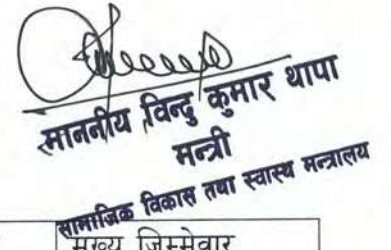 माननीय विन्दु कुमार थापा
मन्त्री
सामाजिक विकास तथा स्वास्थ मन्त्रालय
मुख्य जिम्मेवार